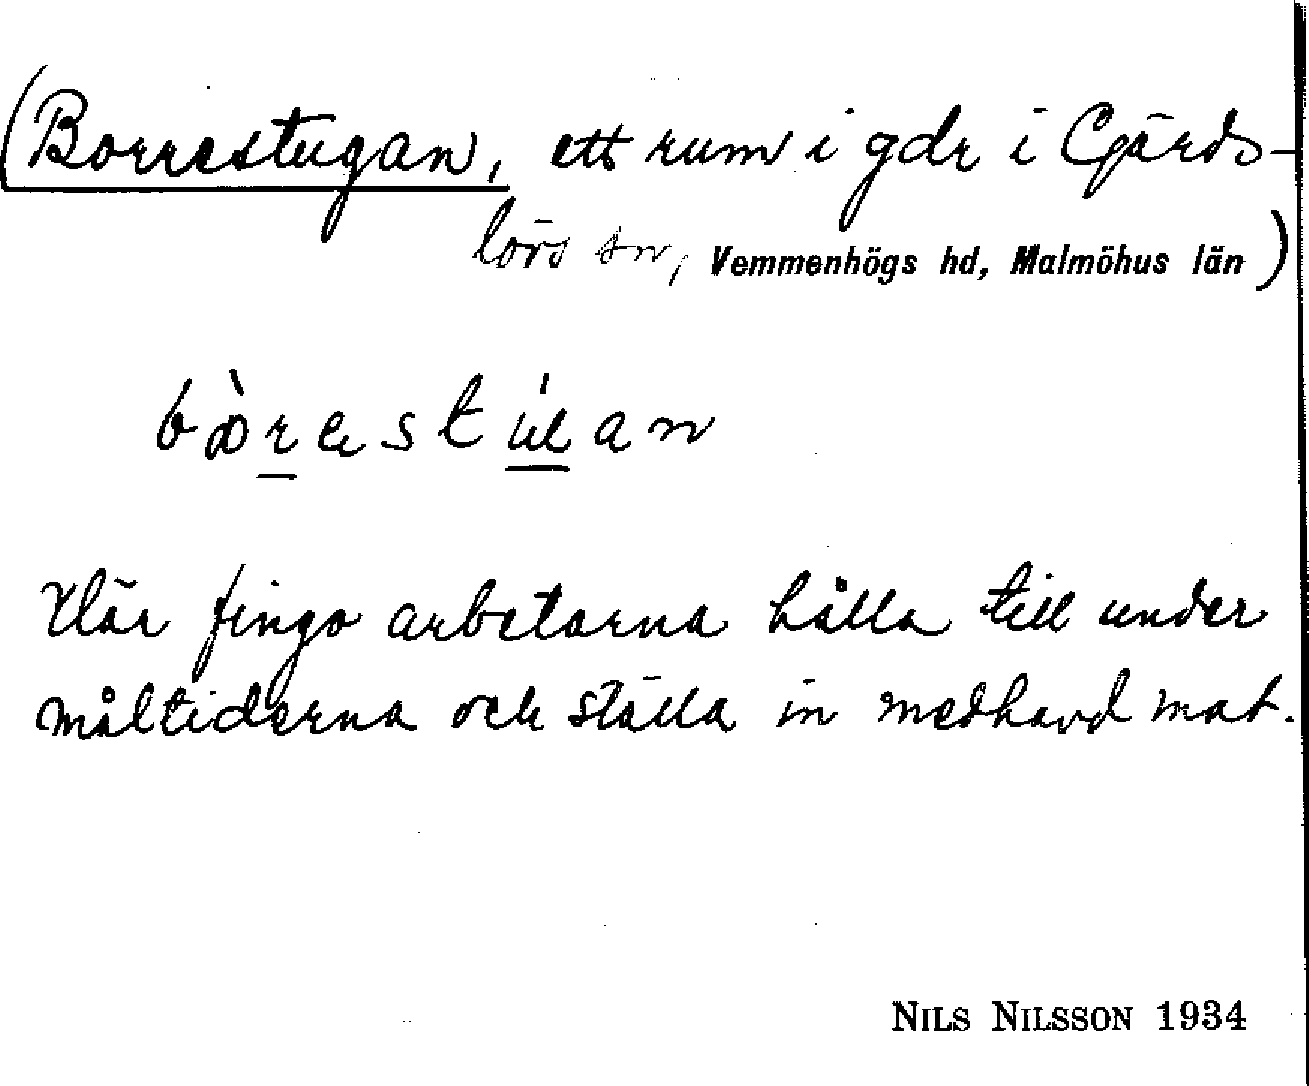 (Borrestugan, ett rum i gdr i Gärds-
lövs sn, Vemmenhögs hd, Malmöhus län)
Här fingo arbetarna hålla till under
måltiderna och ställa in medhavd mat.
NILS NILSSON 1934